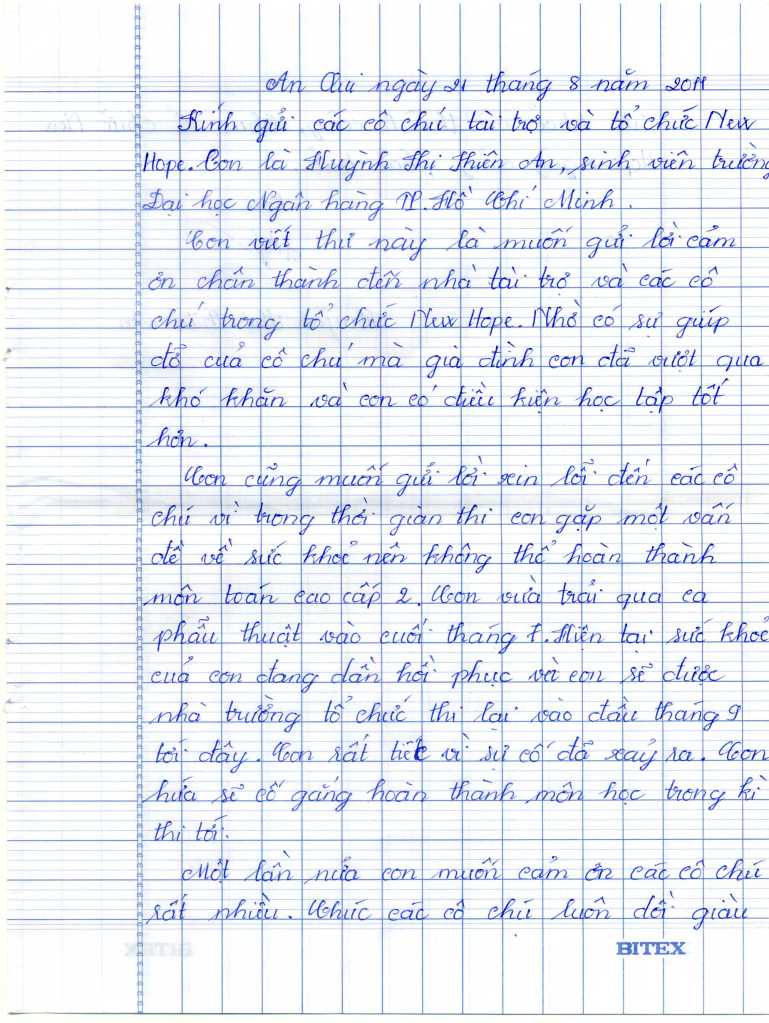 An Cưi ngày 21 tháng 8 năm 2011
Kính gửi các cô chú tài trợ và tổ chức New
Hope. Con là Huỳnh Thị Thiên An, sinh viên trường
Đại học Ngân hàng TP. Hồ Chí Minh.
Con viết thư này là muốn gửi lời cảm
ơn chân thành đến nhà tài trợ và các cô
chú trong tổ chức New Hope. Nhờ có sự giúp
đỡ của cô chú mà gia đình con đã vượt qua
khó khăn và con có điều kiện học tập tốt
hơn.
Con cũng muốn gửi lời xin lỗi đến các cô
chú vì trong thời gian thi con gặp một vấn
đề về sức khoẻ nên không thể hoàn thành
môn toán cao cấp 2. Con vừa trải qua ca
phẩu thuật vào cuối tháng 7. Hiện tại sức khoẻ
của con đang dần hồi phục và con sẽ được
nhà trường tổ chức thi lại vào đầu tháng 9
tới đây. Con rất tiếc vì sự cố đã xảy ra. Con
hứa sẽ cố gắng hoàn thành môn học trong kì
thi tới.
Một lần nữa con muốn cảm ơn các cô chú
rất nhiều. Chúc các cô chú luôn dồi giàu
BITEX